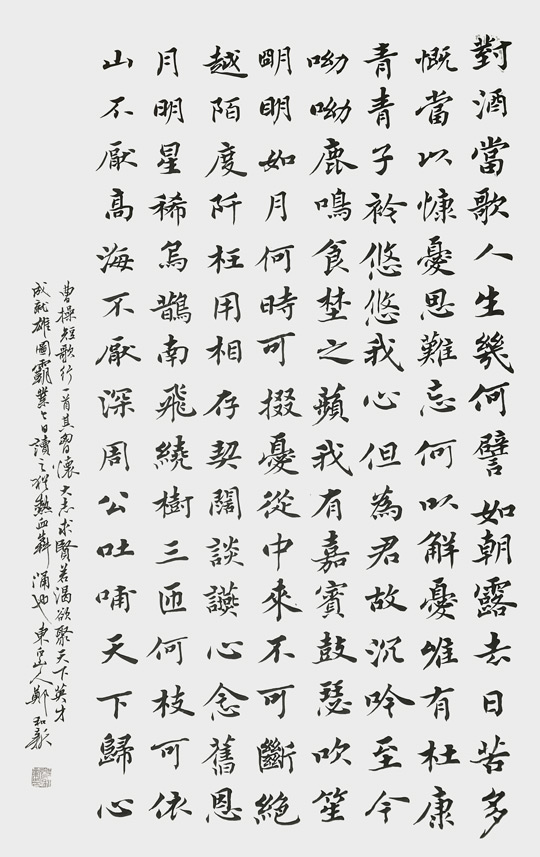 對酒當歌人生幾何譬如朝露去日苦多
慨當以慷憂思難忘何以解憂唯有杜康
青青子衿悠悠我心但為君故沉吟至今
呦呦鹿鳴食埜之蘋我有嘉賓鼓瑟吹笙
明明如月何時可掇憂從中來不可斷絕
越陌度阡枉用相存契闊談讌心念舊恩
月明星稀烏鵲南飛繞樹三匝何枝可依
山不厭高海不厭深周公吐哺天下歸心
曹操短歌行一首其胸懷大志求賢若渴欲聚天下英才
成就雄圖霸業今日讀之猶熱血奔涌也東人鄭